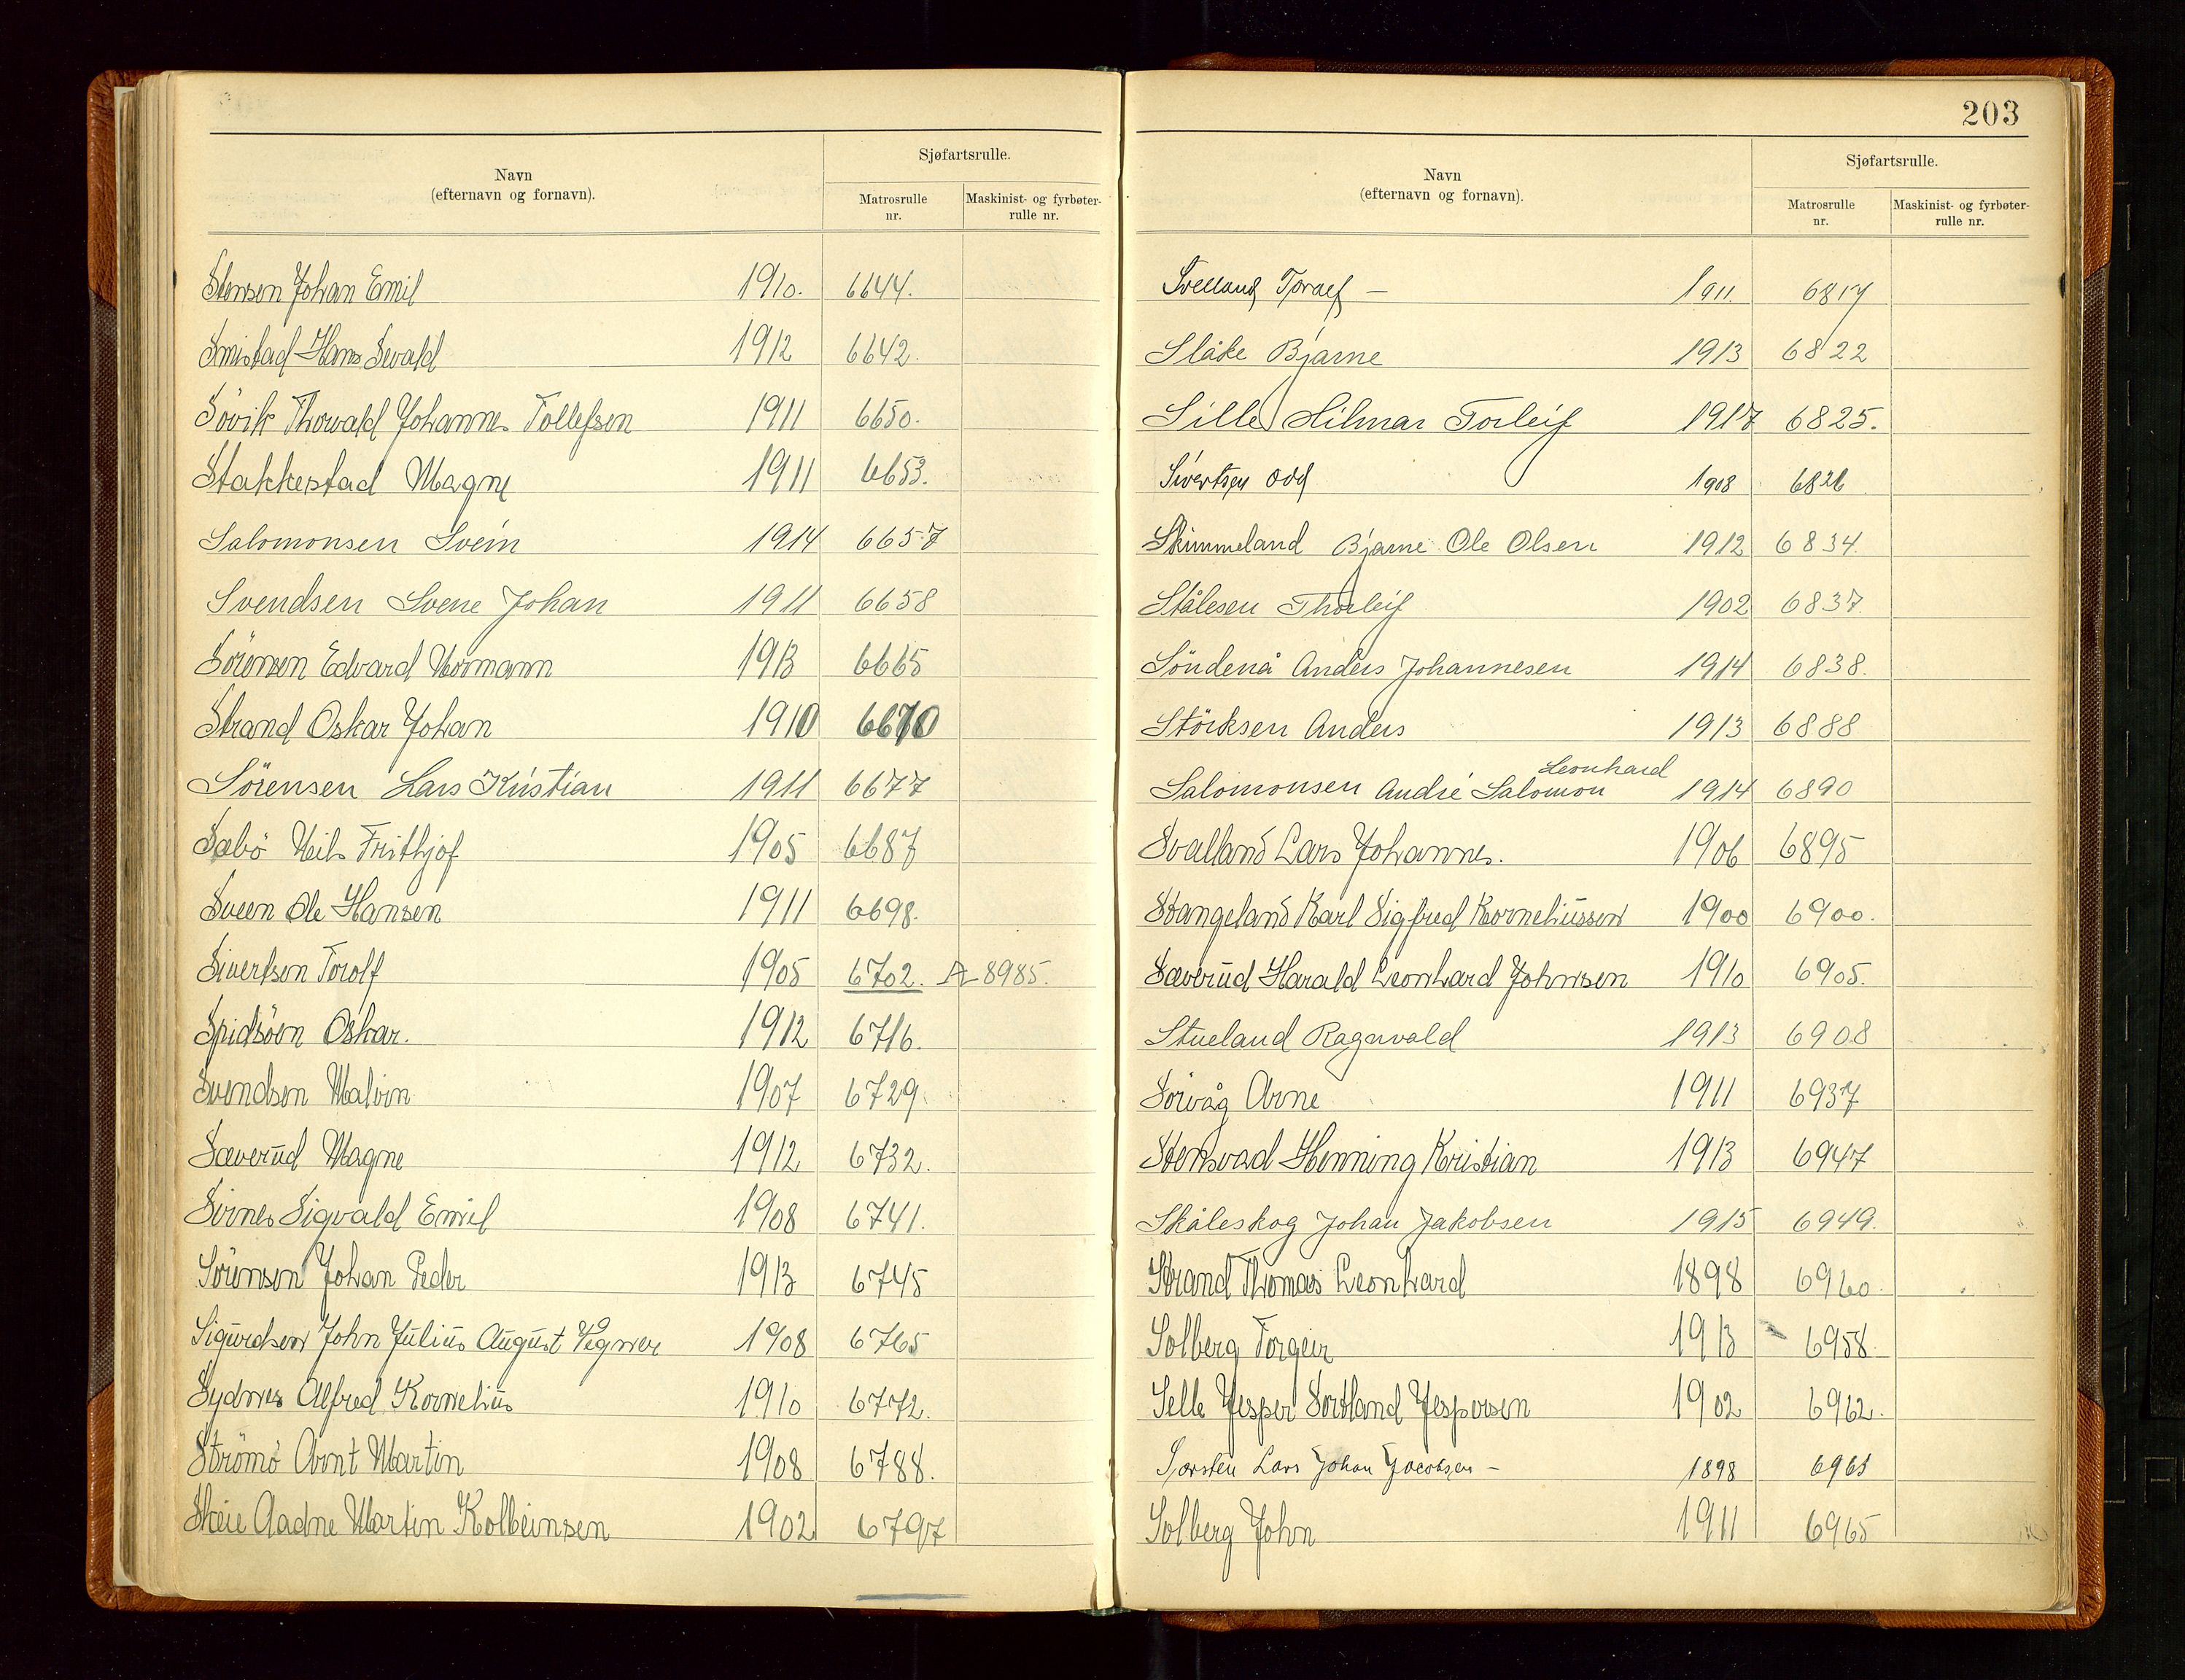 Navn
(efternavn og fornavn).
Sjøfartsrulle.
Matrosrulle nr.
Maskinist- og fyrbøter-rulle nr.
Stensen Johan Emil 1910. 6644.
Smistad Hans Sevald 1912 6642.
Sövik Thorvald Johannes Tollefsen 1911 6650.
Stakkestad Magne 1911 6653.
Salomonsen Svein 1914 6657
Svendsen Svene Johan 1911 6658
Sörensen Edvard Normann 1913 6665
Strand Oskar Johan 1910 6670
Sörensen Lars Kristian 1911 6677
Sæbö Nils Frithjof 1905 6687
Sveen Ole Hansen 1911 6698.
Sivertsen Torolf 1905 6702. A 8985.
Spidsöen Oskar. 1912 6716.
Svendsen Malvin 1907 6729.
Sæverud Magne 1912 6732.
Sirnes Sigvald Emil 1908 6741.
Sörensen Johan Peder 1913 6745
Sigurdsen John Julius August Vegner 1908 6765
Sydnes Alfred Kornelius 1910 6772.
Strömö Arnt Martin 1908 6788.
Skeie Aadne Martin Kolbeinsen 1902 6797
203
Navn
(efternavn og fornavn).
Sjøfartsrulle.
Matrosrulle nr.
Maskinist- og fyrbøter-rulle nr.
Svelland Toralf – 1911. 6817
Slåke Bjarne 1913 6822
Sille Hilmar Torleif 1917 6825.
Sivertsen Odd 1908 6826
Skimmeland Bjarne Ole Olsen 1912 6834
Stålesen Thorleif 1902 6837.
Söndenå Anders Johannesen 1914 6838.
Störksen Anders 1913 6888
Leonhard
Salomonsen André Salomon 1914 6890
Svalland Lars Johannes. 1906 6895
Stangeland Karl Sigfred Korneliussen 1900 6900.
Sæverud Harald Leonhard Johnsen 1910 6905.
Stueland Ragnvald 1913 6908
Sörvåg Arne 1911 6937
Stensvad Henning Kristian 1913 6947
Skåleskog Johan Jakobsen 1915 6949.
Strand Thomas Leonhard 1898 6960
Solberg Torgeir 1913 6958.
Selle Jesper Sortland Jespersen 1902 6962.
Lars Johan Jacobsen – 1898 6963
Solberg John 1911 6965